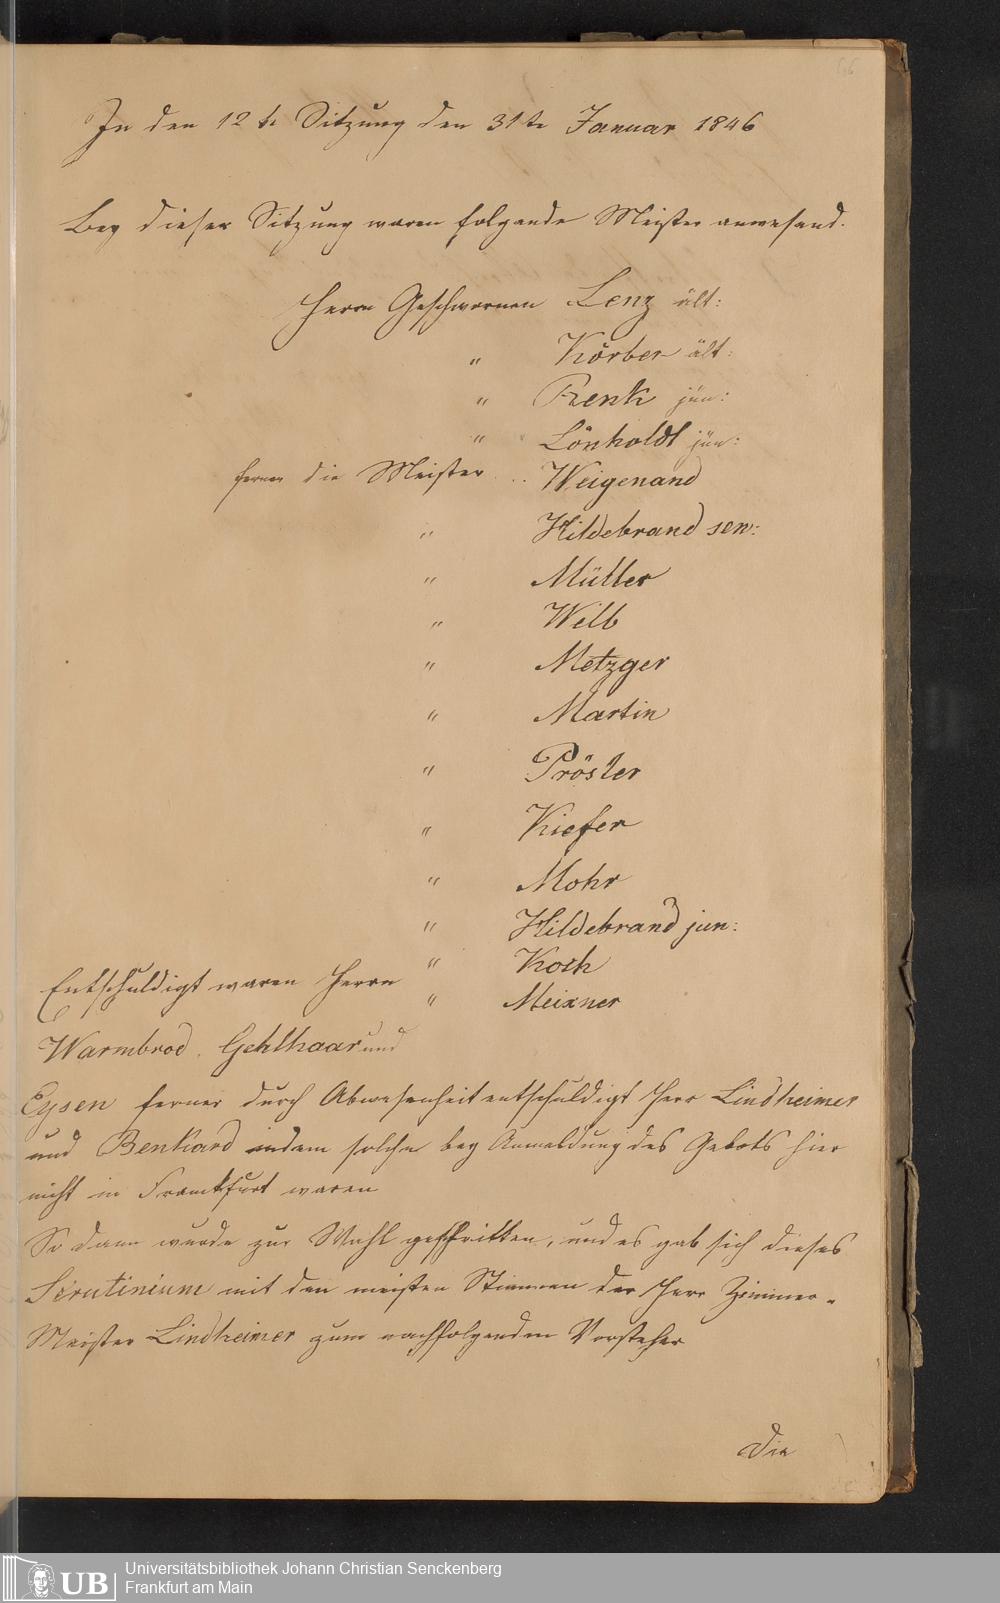 66
In der 12te Sitzung den 31te Januar 1846
Bey dieser Sitzung waren folgende Meister anwesend.
Herrn Geschwornen Lenz ält:
" Körber ält:
" Renk jün:
" Lönholdt jün:
ferner die Meister .. Weigenand
" Hildebrand sen:
" Müller
" Welb
" Metzger
" Martin
" Pröster
" Kiefer
" Mohr
" Hildebrand jun:
" Koch
" Meixner
Entschuldigt waren Herrn
Warmbrod, Gehlhaar und
Eysen ferner durch Abwesenheit entschuldigt Herr Lindheimer
und Benkard indem solche bey Anmeldung des Gebots hier
nicht in Frankfurt waren
So dann wurde zur Wahl geschritten, und es gab sich dieses
Scrutinium mit den meisten Stimmen der Herr Zimmer-
Meister Lindheimer zum nachfolgenden Vorsteher
Die
UB
Universitätsbibliothek Johann Christian Senckenberg
Frankfurt am Main